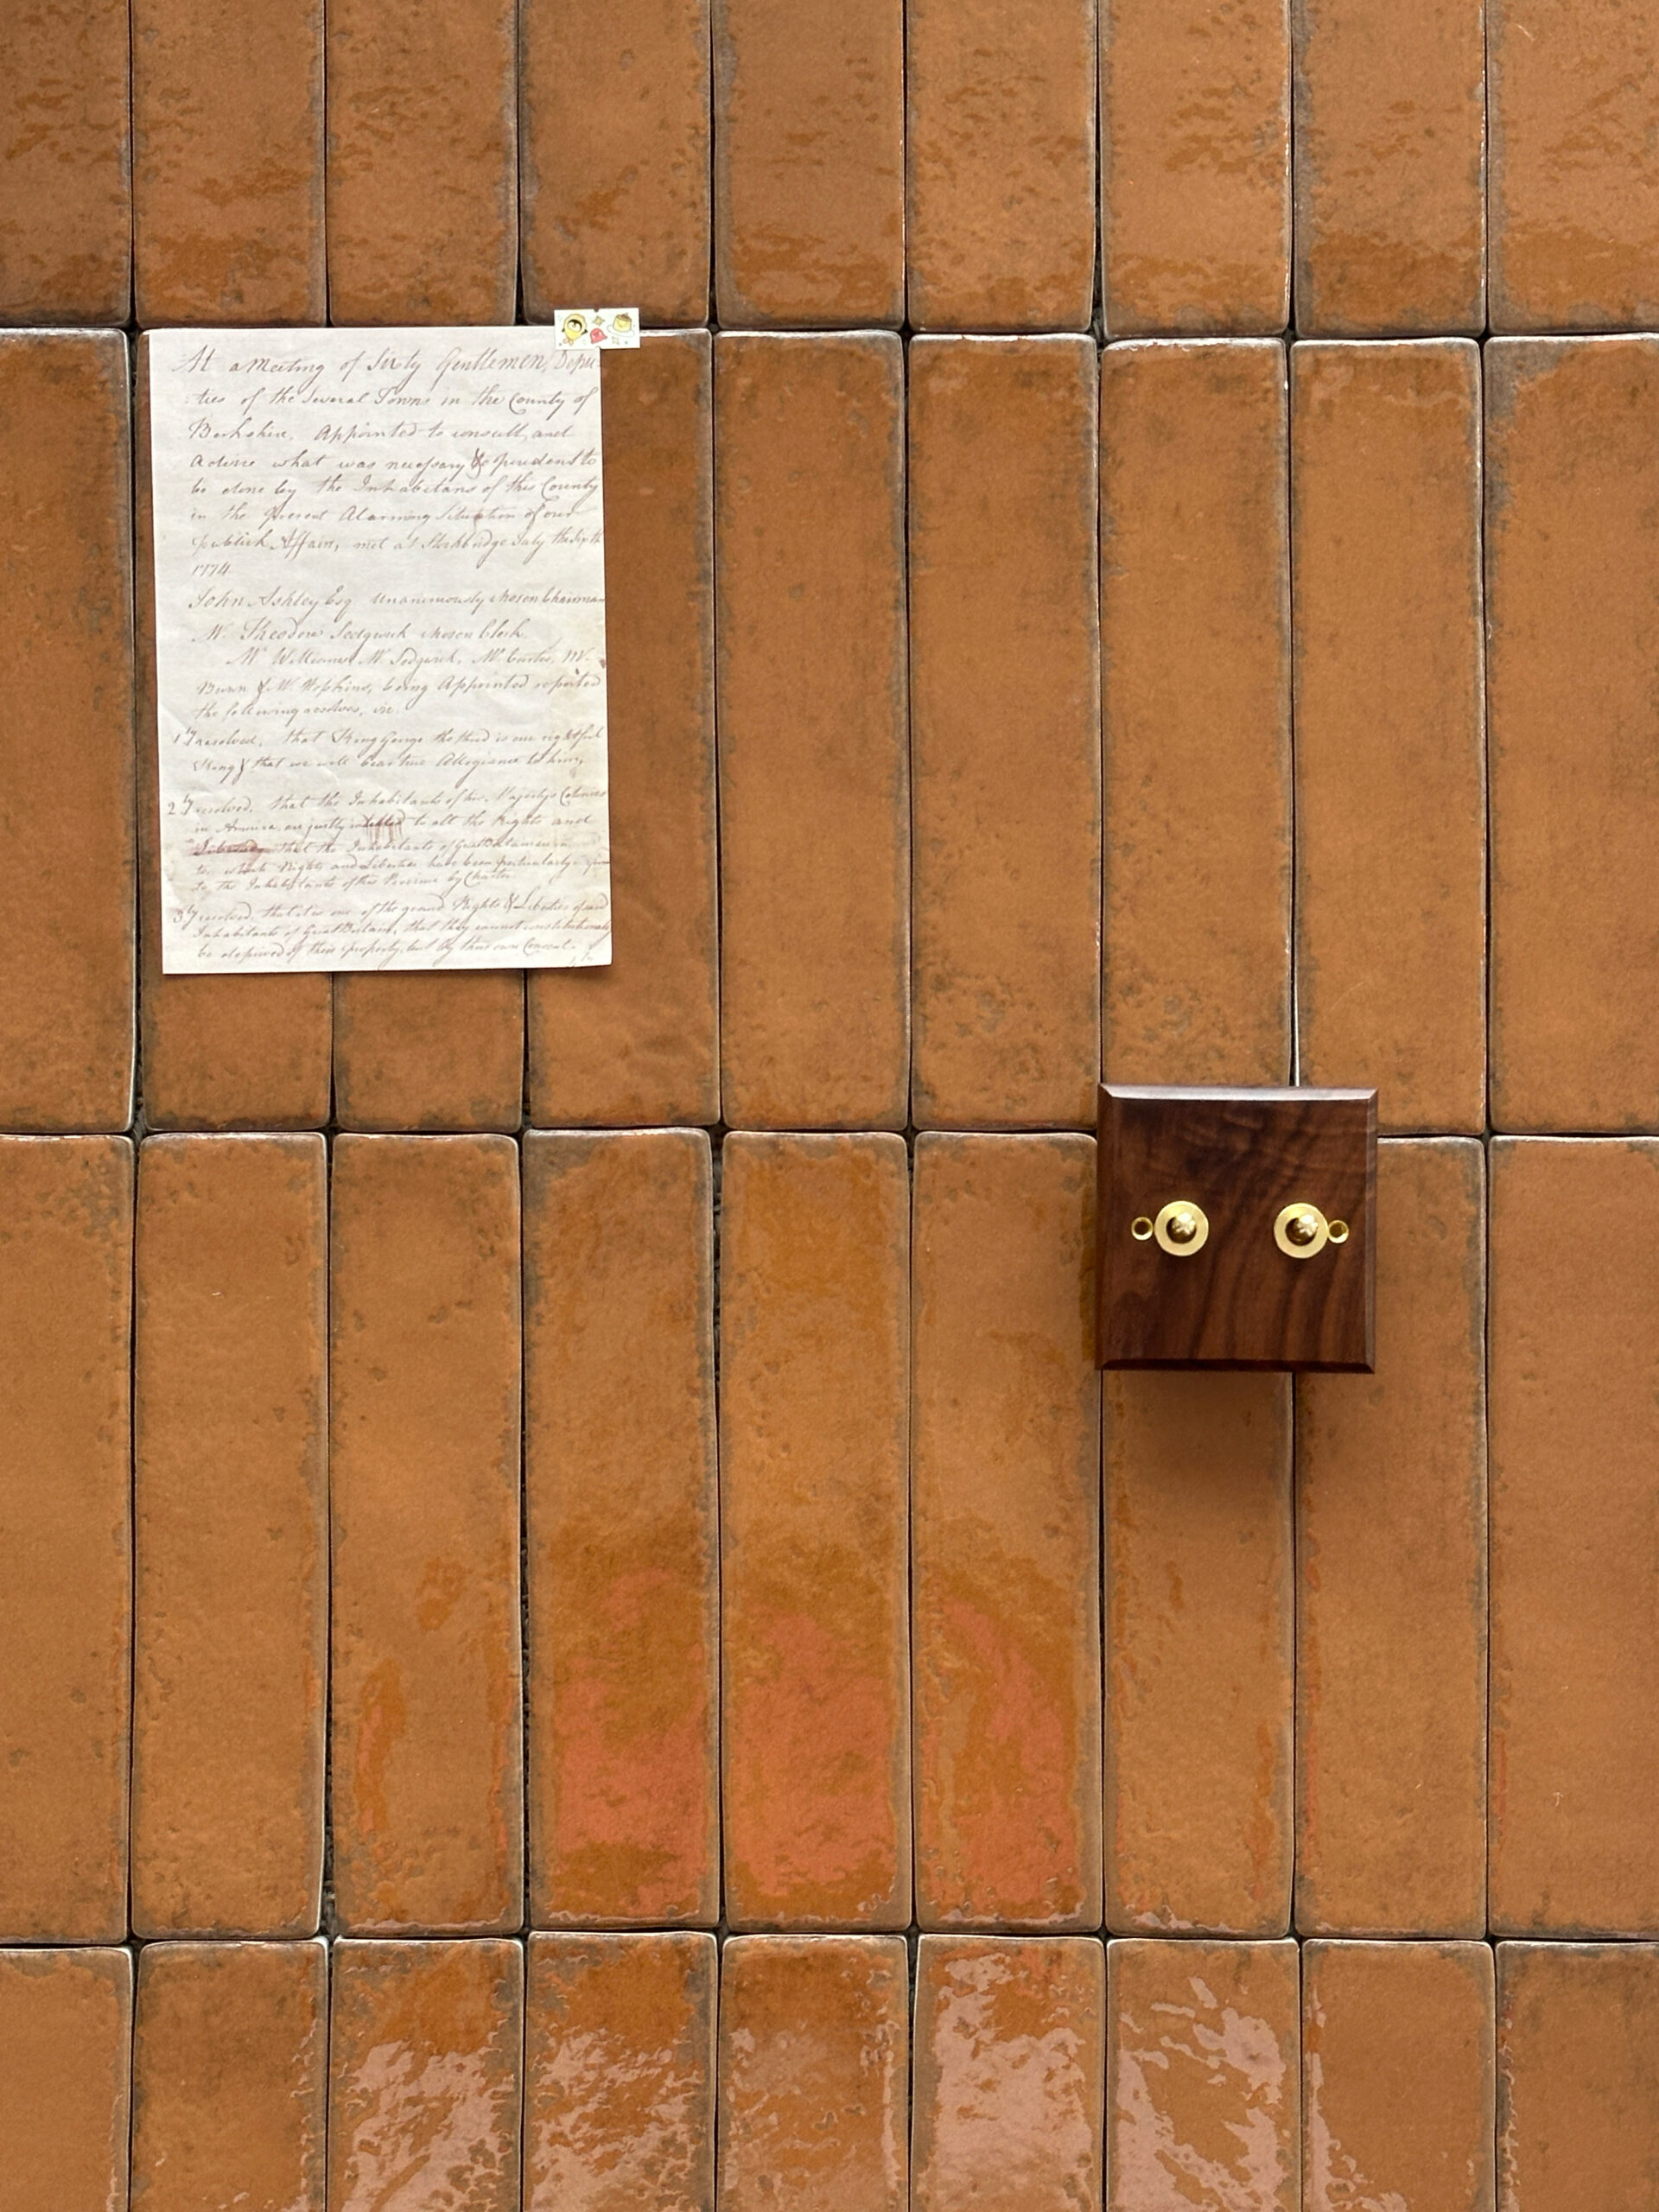 At a Meeting of Sixty Gentlemen, Depu-
:ties of the Several Towns in the County of
Berkshire, Appointed to consult and
Advise what was necessary & prudent to
be done by the Inhabitans of this County
in the present Alarming Situation of our
publick Affairs, met at Stockbridge July the Sixth
1774
John Ashley Esq Unanimously chosen Chairman
Mr. Theodore Sedgwick chosen Clerk.
Mr Williams Mr Sedgwick, Mr Curtis, Mr.
Brown & Mr Hopkins, being Appointed reported
the following resolves, viz.
1ly resolved, that King George the third is our rightful
King & that we will bear true Allegiance to him,
2ly resolved, that the Inhabitants of his Majestys Colonies
in America, are justly intitled to all the Rights and
Liberties that the Inhabitants of Great Britain are
to which Rights and Liberties have been particularly
to the Inhabitants of this Province by Charter
3ly resolved, that it is one of the grand Rights & Liberties of said
Inhabitants of Great Britain, that they cannot constitutionaly
be deprived of their property, but by their own Consent.